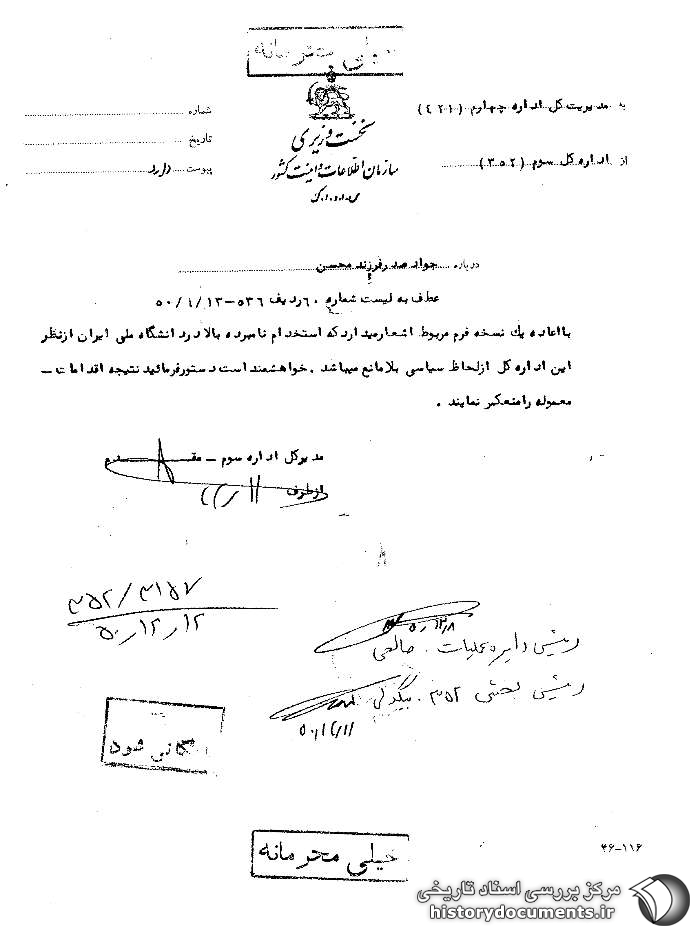 خیلی محرمانه
به مدیریت کل اداره چهارم (۴۲۱)
از اداره کل سوم (۳۵۲)
نخست وزیری
سازمان اطلاعات و امنیت کشور
س.ا.و.ا.ک
شماره
تاریخ
پیوست دارد
درباره جواد صدر فرزند محسن
عطف به لیست شماره ۶۰ ردیف ۵۳۶-۵۰/۱/۱۳
با اعاده یك نسخه فرم مربوط اشعار میدارد که استخدام نامبرده بالا در دانشگاه ملی ایران از نظر
این اداره کل از لحاظ سیاسی بلامانع میباشد . خواهشمند است دستور فرمائید نتیجه اقدامات –
معموله را منعکس نمایند .
مدیر کل اداره سوم – مقدم
از طرف
۳۵۲/۳۱۵۷
۵۰/۱۲/۱۲
۵۰/۱۲/۸
رئیس دایره عملیات . صالحی
رئیس بخش ۳۵۲ . بیگدلی
۵۰/۱۲/۱۱
بایگانی شود
خیلی محرمانه
۳۶-۱۱۶
مرکز بررسی اسناد تاریخی
historydocuments.ir